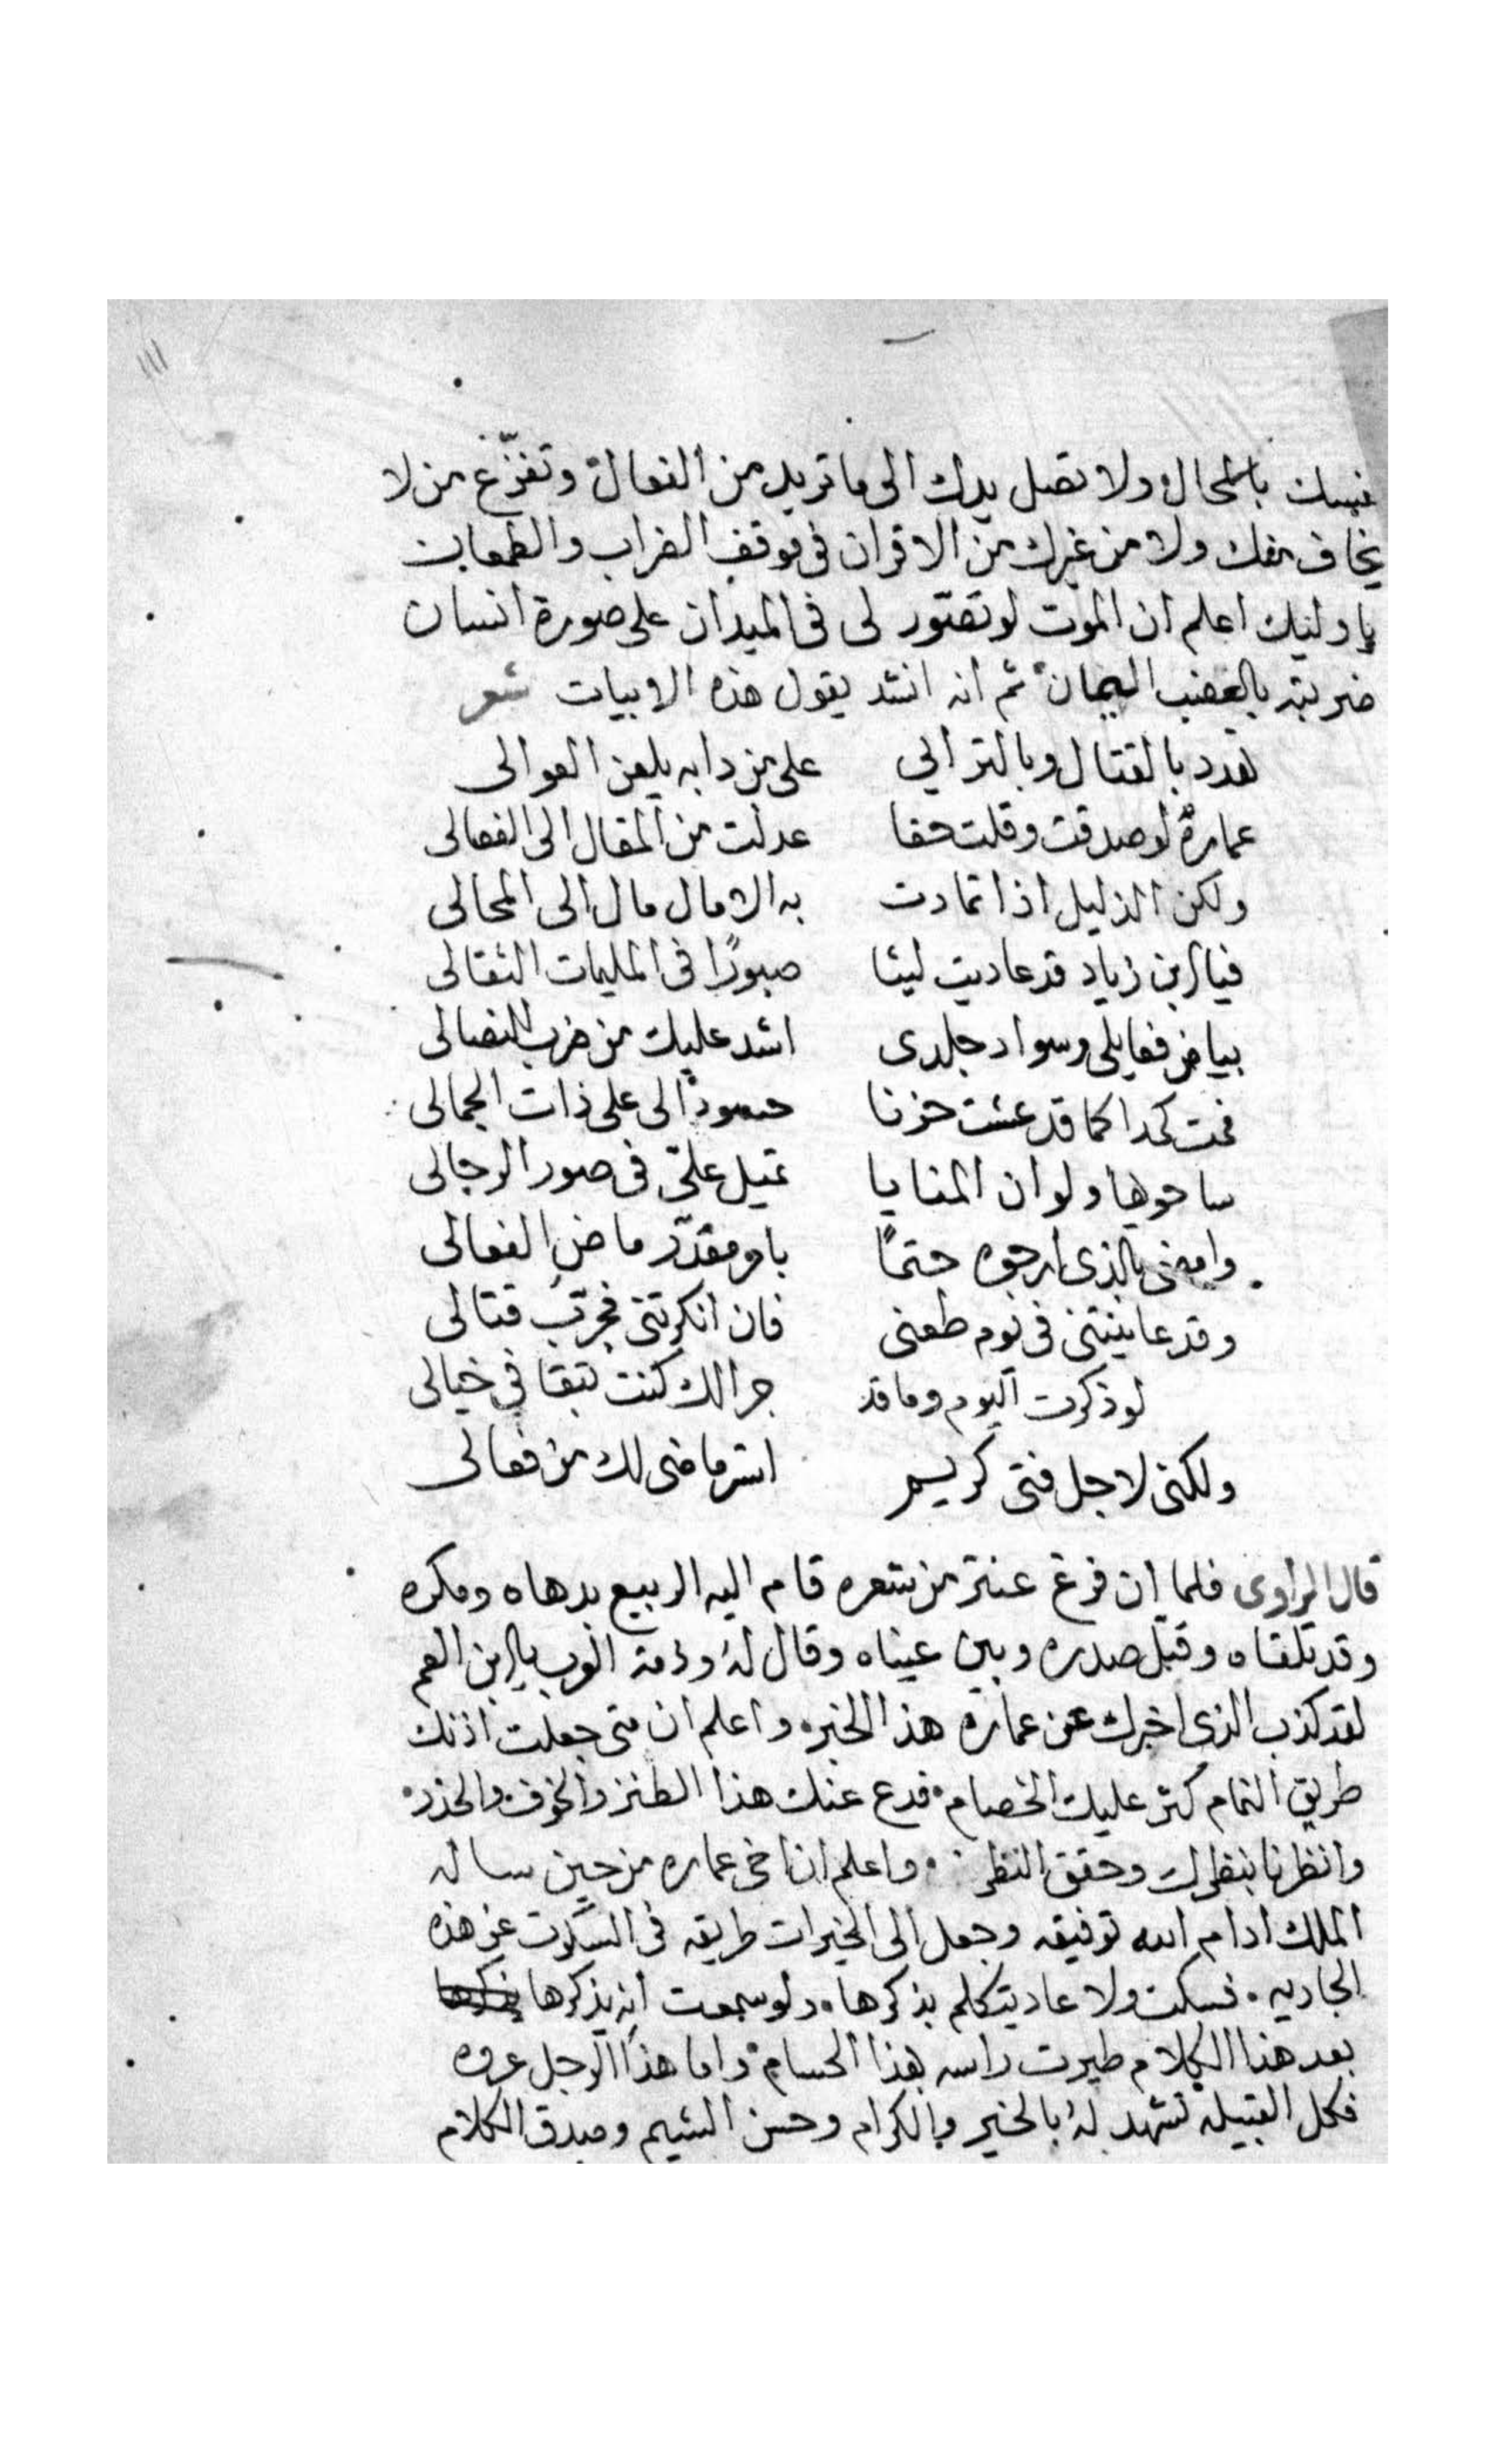 ١١١
نفسك بالمحال ولا تصل يدك الى ما تريد من الفعال وتفزّع من لا
يخاف منك ولا من غيرك من الاقران فى موقف الضراب والطعان
يا وليك اعلم ان الموت لو تصّور لى فى الميدان على صورة انسان
ضربته بالعضب اليمان ثم انه انشد يقول هذه الابيات شعر
تهدد بالقتال وبالنزالي على من دابه يلعن العوالى
عمارة لو صدقت وقلت حقا عدلت من المقال الى الفعالى
ولكن الذليل اذا تمادت به الامال مال الى المحالى
فيا ابن زياد قد عاديت ليثا صبورًا فى المليمات الثقالى
بياض فعايلى وسواد جلدى اشد عليك من ضرب النصالى
فمت كمدا كما قد عشت حزنا حسودًا لى على ذات الجمالى
ساحويها ولو ان المنايا تميل علىّ فى صور الرجالى
وامضى بالذى ارجوه حتمًا بامر مقدّر ماضى الفعالى
وقد عاينتنى فى يوم طعنى فان انكرتنى فجرّب قتالى
لو ذكرت اليوم وما قد جرا لك كنت تبقا فى خيالى
ولكنى لاجل فتى كريم استر ما مضى لك من فعالى
قال الراوى فلما ان فرغ عنتر من شعره قام اليه الربيع بدهاه ومكره
وقد تلقاه وقبل صدره وبين عيناه وقال له وذمة العرب يا ابن العم
لقد كذب الذى اخبرك عن عماره هذا الخبر واعلم ان متى جعلت اذنك
طريق النمام كثر عليك الخصام فدع عنك هذا الطنز والخوف والحذر
وانظرنا بنظرك وحقق النظر واعلم ان اخى عماره من حين ساله
الملك ادام الله توفيقه وجعل الى الخيرات طريقه فى السكوت عن هذه
الجاريه فسكت ولا عاد يتكلم بذكرها ولو سمعت انه يذكرها
بعد هذا الكلام طيرت راسه بهذا الحسام واما هذا الرجل عروه
فكل القبيله تشهد له بالخير والكرام وحسن الشيم وصدق الكلام